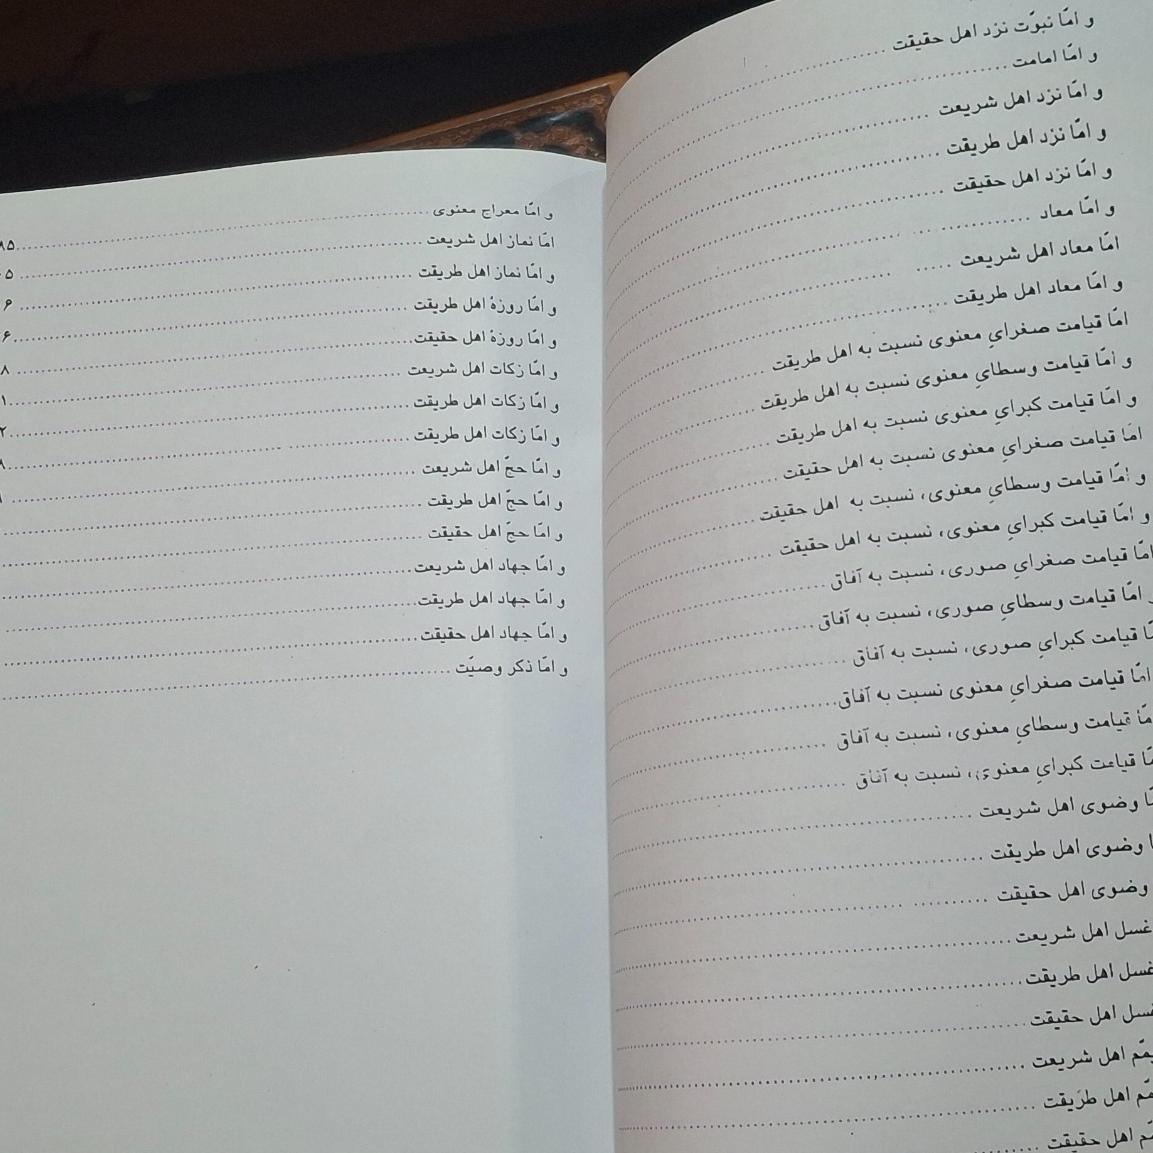 و امّا نبوّت نزد اهل حقیقت
و امّا امامت
و امّا نزد اهل شریعت
و امّا نزد اهل طریقت
و امّا نزد اهل حقیقت
و امّا معاد
امّا معاد اهل شریعت
و امّا معاد اهل طریقت
امّا قیامت صغرایِ معنوی نسبت به اهل طریقت
و امّا قیامت وسطایِ معنوی نسبت به اهل طریقت
و امّا قیامت کبرایِ معنوی نسبت به اهل طریقت
امّا قیامت صغرایِ معنوی نسبت به اهل حقیقت
و امّا قیامت وسطایِ معنوی، نسبت به اهل حقیقت
و امّا قیامت کبرایِ معنوی، نسبت به اهل حقیقت
امّا قیامت صغرایِ صوری، نسبت به آفاق
امّا قیامت وسطایِ صوری، نسبت به آفاق
قیامت کبرایِ صوری، نسبت به آفاق
امّا قیامت صغرایِ معنوی نسبت به آفاق
قیامت وسطایِ معنوی، نسبت به آفاق
قیامت کبرایِ معنوی، نسبت به آفاق
وضوی اهل شریعت
وضوی اهل طریقت
وضوی اهل حقیقت
غسل اهل شریعت
غسل اهل طریقت
غسل اهل حقیقت
اهل شریعت
اهل طریقت
اهل حقیقت
و امّا معراج معنوی
امّا نماز اهل شریعت
و امّا نماز اهل طریقت
و امّا روزهٔ اهل طریقت
و امّا روزهٔ اهل حقیقت
و امّا زکات اهل شریعت
و امّا زکات اهل طریقت
و امّا زکات اهل طریقت
و امّا حجّ اهل شریعت
و امّا حجّ اهل طریقت
و امّا حجّ اهل حقیقت
و امّا جهاد اهل شریعت
و امّا جهاد اهل طریقت
و امّا جهاد اهل حقیقت
و امّا ذکر وصیّت